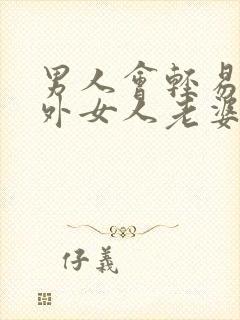 男人會輕易
外女人老婆
仔義